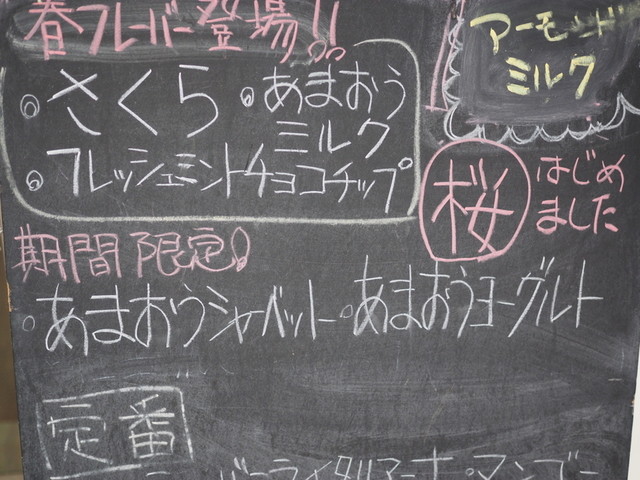 春フレーバー登場!!
アーモンド
ミルク
さくら
あまおう
ミルク
フレッシュミントチョコチップ
桜
はじめ
ました
期間限定!
あまおうシャーベット
あまおうヨーグルト
定番
マンゴー